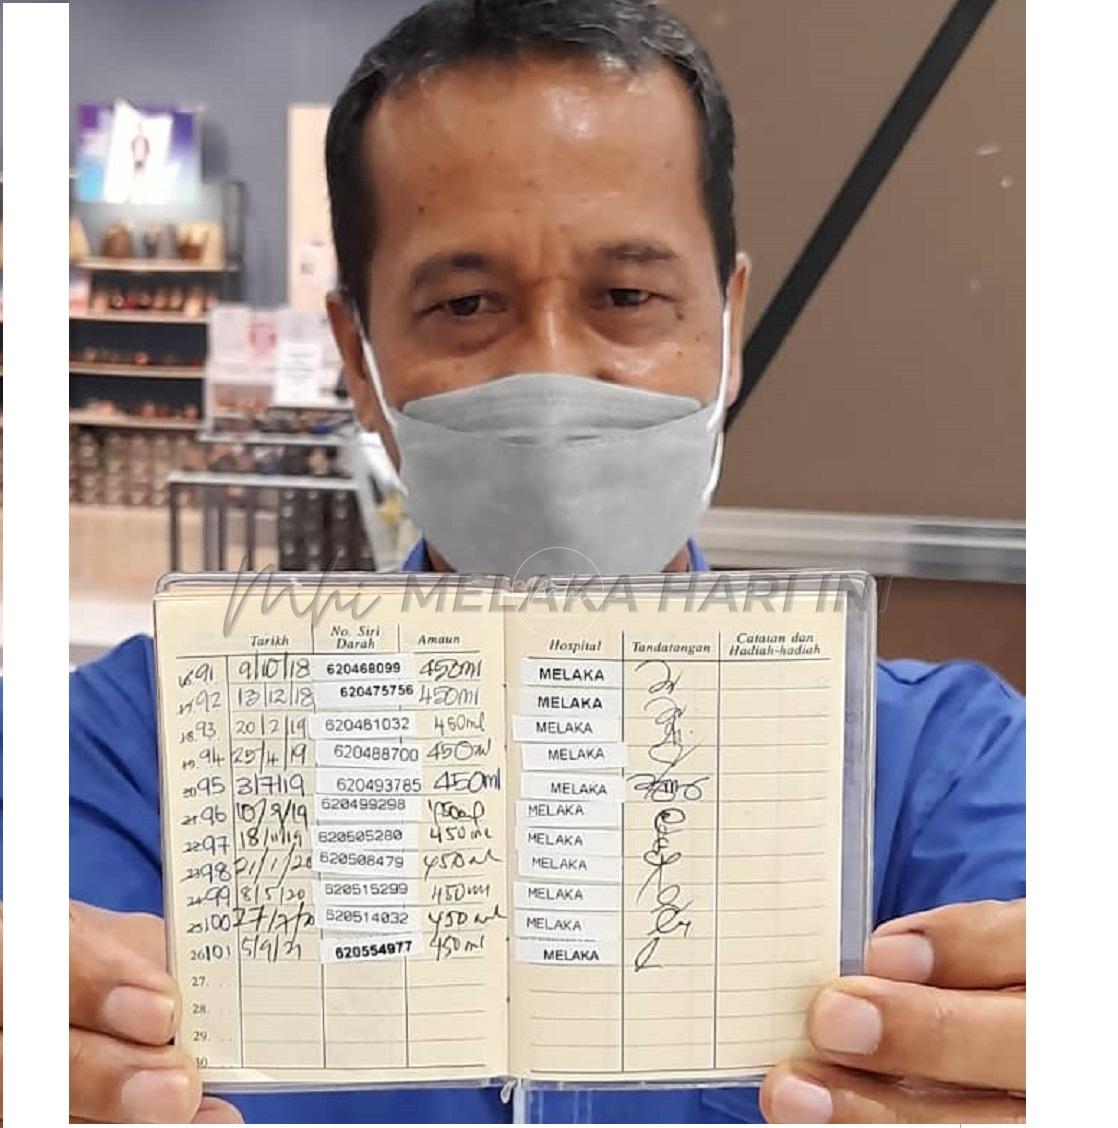 Mhi MELAKA HARI INI
Tarikh No. Siri Darah Amaun Hospital Tandatangan Catatan dan Hadiah-hadiah
16. 91 9/10/18 620468099 450ml MELAKA
17. 92 13/12/18 620475756 450ml MELAKA
18. 93 20/2/19 620481032 450ml MELAKA
19. 94 25/4/19 620488700 450ml MELAKA
20. 95 3/7/19 620493785 450ml MELAKA
21. 96 620499298 MELAKA
22. 97 18/11/19 620505280 450ml MELAKA
23. 98 21/1/20 620508479 450ml MELAKA
24. 99 8/5/20 620515299 450ml MELAKA
25. 100 27/7/20 620514032 450ml MELAKA
26. 101 5/9/21 620554977 450ml MELAKA
27.
28.
29.
30.